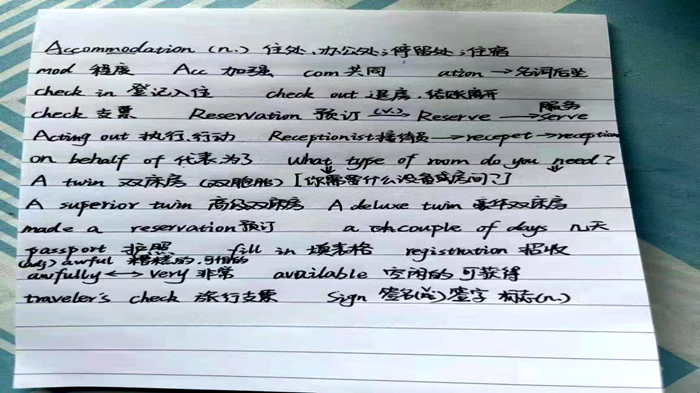 Accommodation (n.) 住处,办公处;停留处;住宿
mod 程度 Acc 加强 com共同 ation →名词后坠
check in 登记入住 check out 退房,结账离开
服务
check 支票 Reservation 预订 (v.) Reserve → serve
Acting out 执行,行动 Receptionist接待员 → recepet → reception
on behalf of 代表,为了 what type of room do you need?
A twin 双床房 (双胞胎) [你需要什么设备或房间了]
A superior twin 高级双床房 A deluxe twin 豪华双床房
made a reservation预订 a couple of days 几天
passport 护照 fill in 填表格 registration 招收
(adj) awful 糟糕的,可怕的
awfully ↔ very 非常 available 空闲的 可获得
traveler's check 旅行支票 Sign 签名(v.)签字 标志(n.)